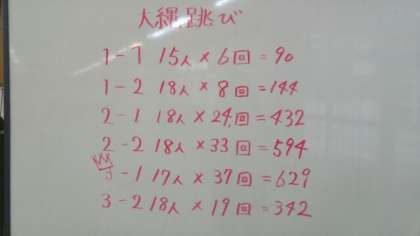 大縄跳び
1-1 15人×6回=90
1-2 18人×8回=144
2-1 18人×24回=432
2-2 18人×33回=594
3-1 17人×37回=629
3-2 18人×19回=342